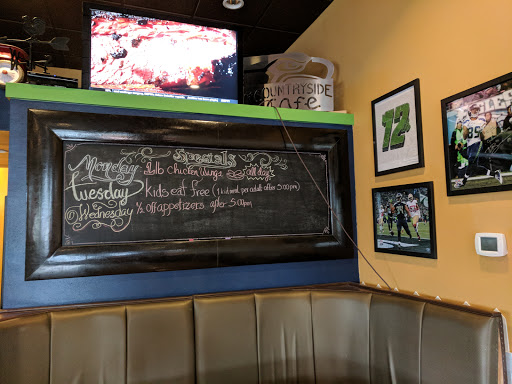 COUNTRYSIDE
Cafe
Specials
Monday 1lb chicken wings all day
Tuesday kids eat free (1 kid meal per adult after 5:00pm)
Wednesday ½ off appetizers after 5:00pm
12